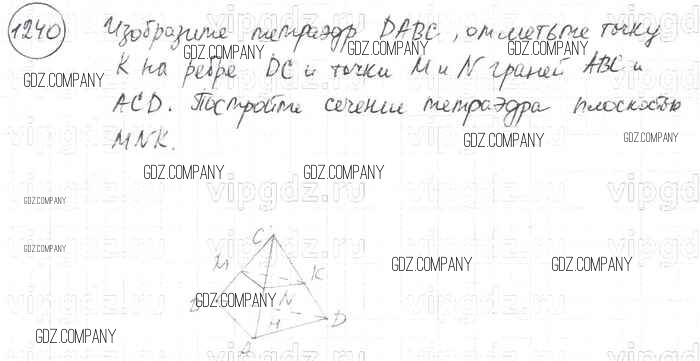 1240
Изобразите тетраэдр DABC, отметьте точку
K на ребре DC и точки M и N граней ABC и
ACD. Постройте сечение тетраэдра плоскостью
MNK.
GDZ.COMPANY GDZ.COMPANY GDZ.COMPANY
GDZ.COMPANY
GDZ.COMPANY GDZ.COMPANY
GDZ.COMPANY GDZ.COMPANY
GDZ.COMPANY
GDZ.COMPANY
GDZ.COMPANY GDZ.COMPANY
GDZ.COMPANY
GDZ.COMPANY
vipgdz.ru
C
M
K
B
N
H
D
A